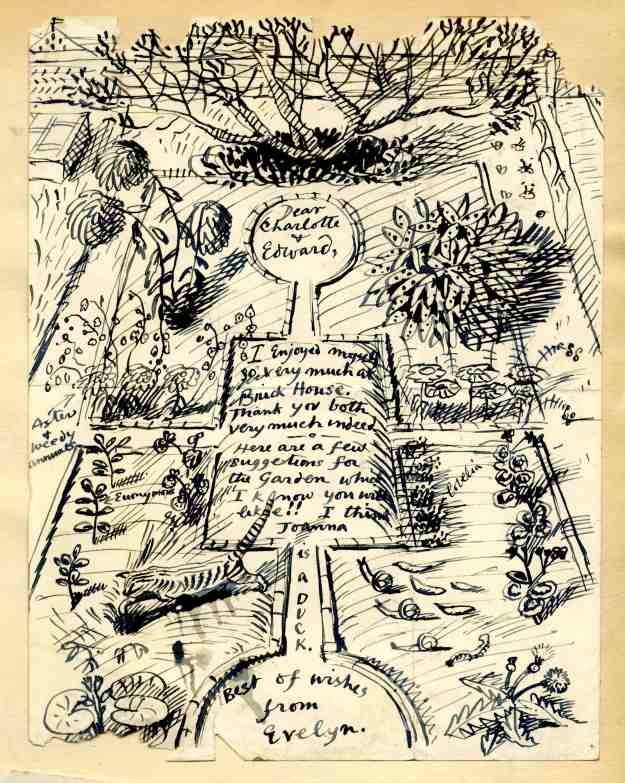 Dear
Charlotte
&
Edward,
I Enjoyed myself
so very much at
Brick House.
Thank you both
very much indeed
Here are a few
suggestions for
the Garden which
I know you will
like!! I think
Joanna
is
A
DUCK.
Best of wishes
from
Evelyn.
Aster
&
weedy
annuals
Euonymous
Lobelia